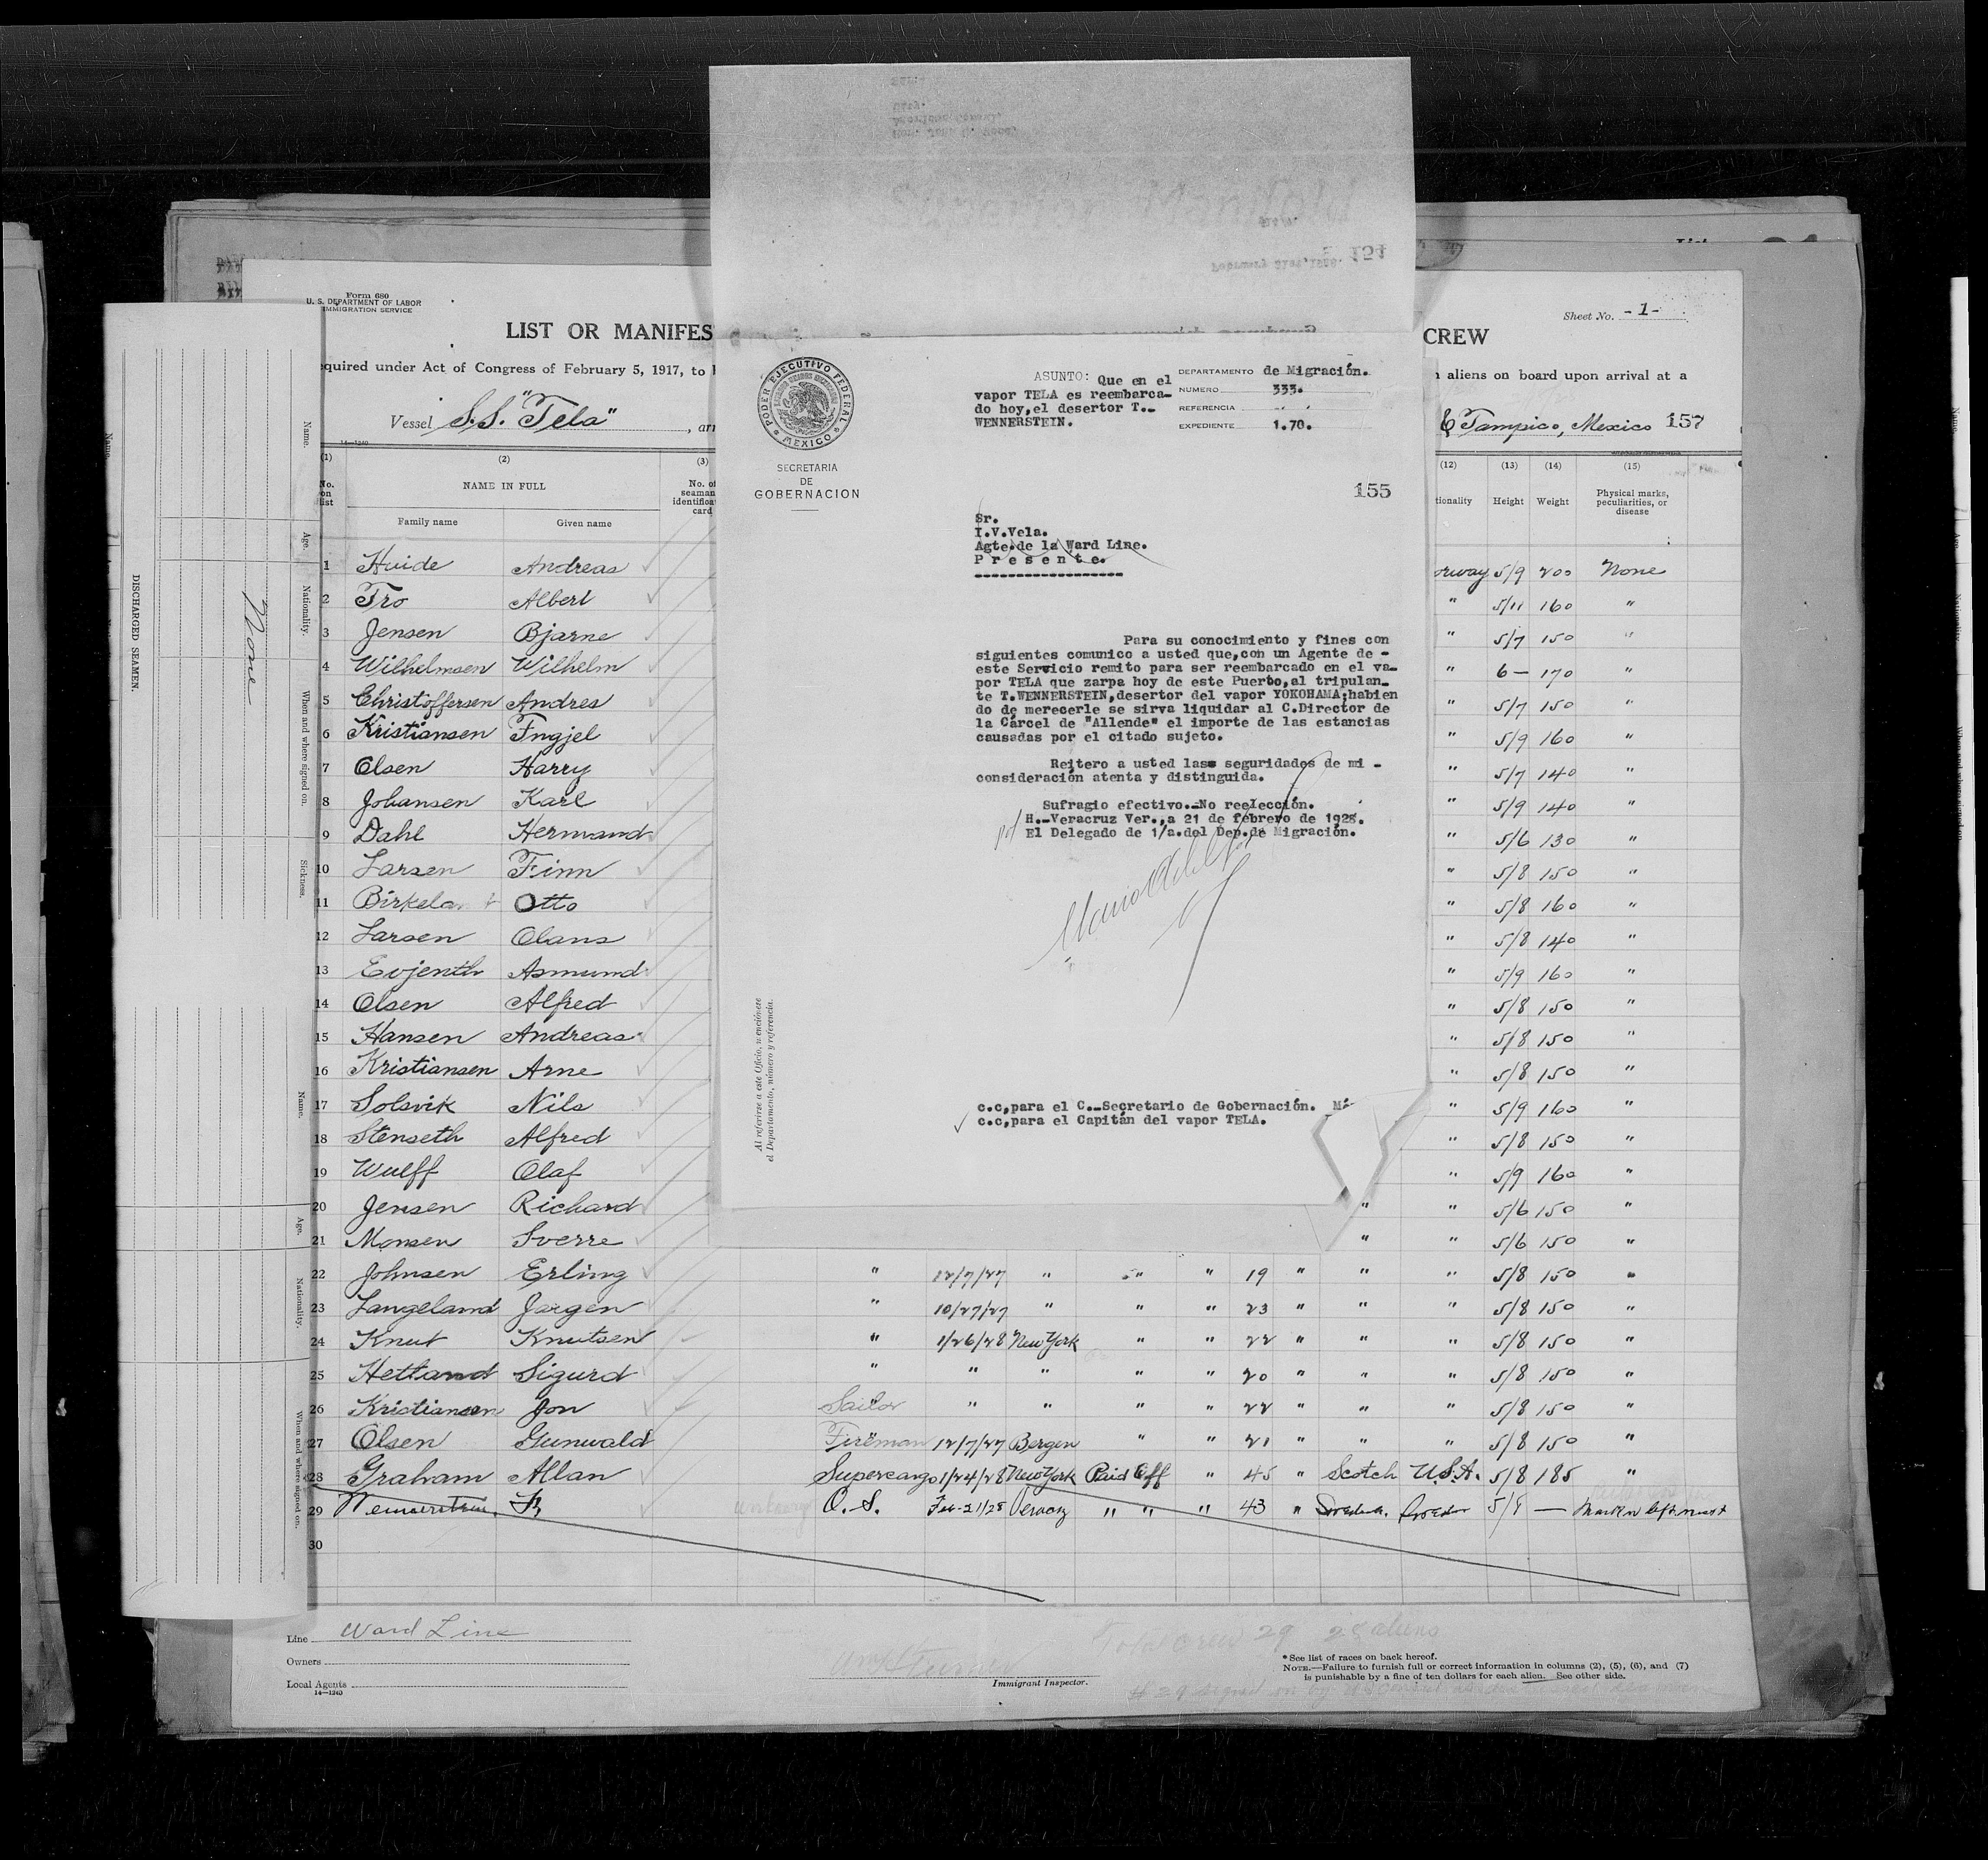 Form 680
U. S. DEPARTMENT OF LABOR
IMMIGRATION SERVICE
Sheet No. -1-
LIST OR MANIFES
CREW
quired under Act of Congress of February 5, 1917, to
aliens on board upon arrival at a
Vessel S.S. "Tela"
, arr
Tampico, Mexico 157
14-1240
154
PODER EJECUTIVO FEDERAL
MEXICO
SECRETARIA
DE
GOBERNACION
ASUNTO: Que en el
vapor TELA es reembarca-
do hoy,el desertor T.-
WENNERSTEIN.
DEPARTAMENTO de Migración.
NUMERO 333.
REFERENCIA
EXPEDIENTE 1.70.
155
Sr.
I.V.Vela.
Agte.de la Ward Line.
P r e s e n t e.
Para su conocimiento y fines con
siguientes comunico a usted que,con un Agente de -
este Servicio remito para ser reembarcado en el va-
por TELA que zarpa hoy de este Puerto,al tripulan-
te T.WENNERSTEIN,desertor del vapor YOKOHAMA;habien
do de merecerle se sirva liquidar al C.Director de
la Cárcel de "Allende" el importe de las estancias
causadas por el citado sujeto.
Reitero a usted lass seguridades de mi -
consideración atenta y distinguida.
Sufragio efectivo.-No reelección.
H.-Veracruz Ver.,a 21 de febrero de 1928.
El Delegado de 1/a.del Dep.de Migración.
Al referirse a este Oficio, menciónese
el Departamento, número y referencia.
c.c,para el C.-Secretario de Gobernación.
c.c,para el Capitán del vapor TELA.
(1) (2) (3) (12) (13) (14) (15)
No. on list
NAME IN FULL
Family name Given name
No. of seaman identifica card
tionality Height Weight Physical marks, peculiarities, or disease
1 Huide Andreas orway 5/9 200 None
2 Tro Albert " 5/11 160 "
3 Jensen Bjarne " 5/7 150 "
4 Wilhelmsen Wilhelm " 6- 170 "
5 Christoffersen Andres " 5/7 150 "
6 Kristiansen Fngjel " 5/9 160 "
7 Olsen Harry " 5/7 140 "
8 Johansen Karl " 5/9 140 "
9 Dahl Hermand " 5/6 130 "
10 Larsen Finn " 5/8 150 "
11 Birkeland Otto " 5/8 160 "
12 Larsen Olans " 5/8 140 "
13 Evjenth Asmund " 5/9 160 "
14 Olsen Alfred " 5/8 150 "
15 Hansen Andreas " 5/8 150 "
16 Kristiansen Arne " 5/8 150 "
17 Solsvik Nils " 5/9 160 "
18 Stenseth Alfred " 5/8 150 "
19 Wulff Olaf " 5/9 160 "
20 Jensen Richard " " 5/6 150 "
21 Monsen Sverre " " 5/6 150 "
22 Johnsen Erling " 12/7/27 " " " 19 " " " 5/8 150 "
23 Langeland Jørgen " 10/27/27 " " " 23 " " " 5/8 150 "
24 Knut Knutsen " 1/26/28 New York " " 22 " " " 5/8 150 "
25 Hetland Sigurd " " " " " 20 " " " 5/8 150 "
26 Kristiansen Jon Sailor " " " " 22 " " " 5/8 150 "
27 Olsen Gunwald Fireman 12/7/27 Bergen " " 21 " " " 5/8 150 "
28 Graham Allan Supercargo 1/24/28 New York Paid Off " 45 " Scotch U.S.A. 5/8 185 "
29 O. S. Feb-21/28 " " " 43 "
30
Line Ward Line
Owners
Local Agents
14-1240
Immigrant Inspector.
Total crew 29 28 aliens
*See list of races on back hereof.
NOTE.—Failure to furnish full or correct information in columns (2), (5), (6), and (7)
is punishable by a fine of ten dollars for each alien. See other side.
DISCHARGED SEAMEN.
None
Name.
Age.
Nationality.
When and where signed on.
Sickness.
Name.
Age.
Nationality.
When and where signed on.